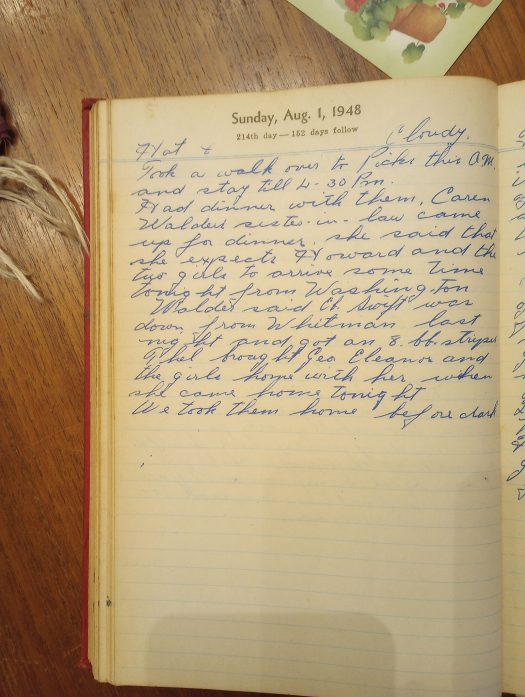 Sunday, Aug. 1, 1948
214th day—152 days follow
Hot & Cloudy.
Took a walk over to Picks this A.M.
and stay till 4-30 P.m.
Had dinner with them, Caren
Walder sister-in-law came
up for dinner, she said that
she expects Howard and the
two girls to arrive some time
tonight from Washington
Walder said Eb. Swift was
down from Whitman last
night and got an 8. lb. striper
Ethel brought Geo Eleanor and
the girls home with her when
she came home tonight
We took them home before dark